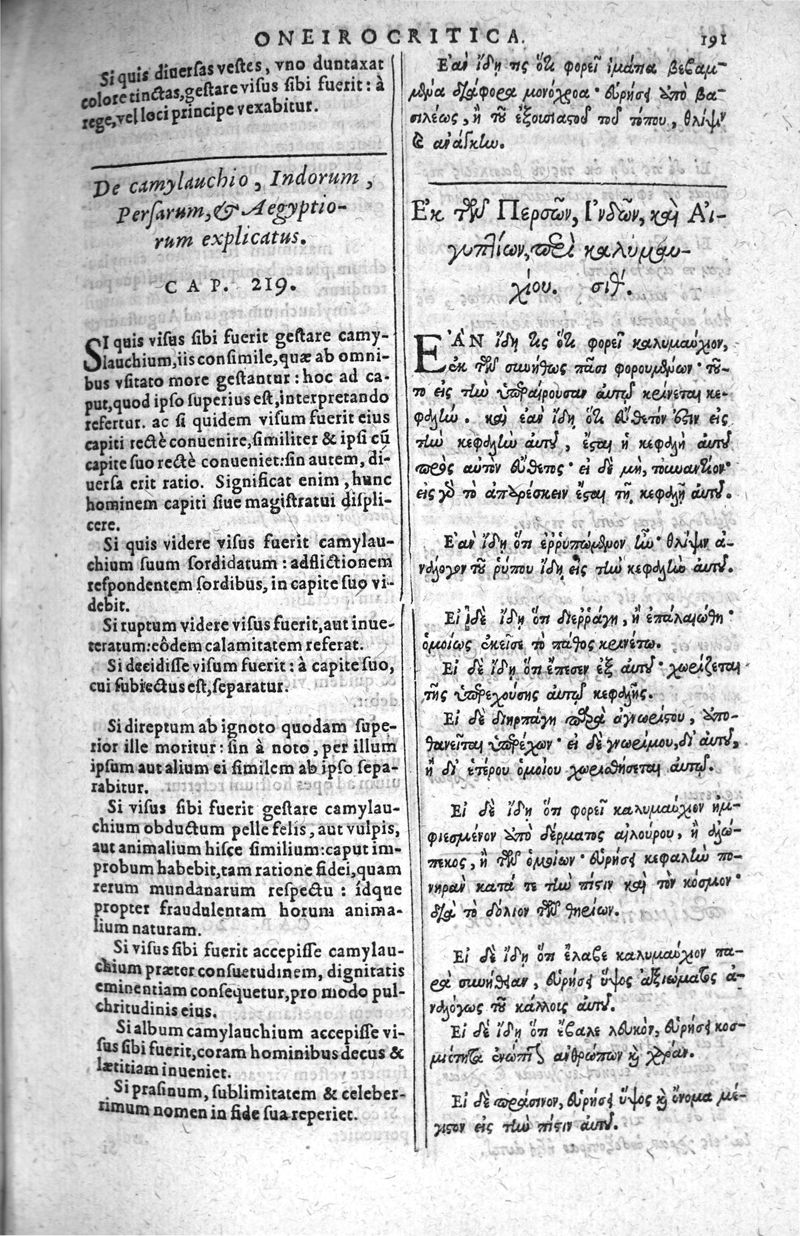 ONEIROCRITICA. 191
Si quis diuersas vestes, vno duntaxat
colore tinctas, gestare visus sibi fuerit: à
rege, vel loci principe vexabitur.
De camylauchio, Indorum,
Persarum, & Aegyptio-
rum explicatus.
CAP. 219.
SI quis visus sibi fuerit gestare camy-
lauchium, iis consimile, quæ ab omni-
bus vsitato more gestantur: hoc ad ca-
put, quod ipso superius est, interpretando
refertur. ac si quidem visum fuerit eius
capiti rectè conuenire, similiter & ipsi cũ
capite suo rectè conueniet: sin autem, di-
uersa erit ratio. Significat enim, hunc
hominem capiti siue magistratui displi-
cere.
Si quis videre visus fuerit camylau-
chium suum sordidatum: adflictionem
respondentem sordibus, in capite suo vi-
debit.
Si ruptum videre visus fuerit, aut inue-
teratum: eôdem calamitatem referat.
Si decidisse visum fuerit: à capite suo,
cui subiectus est, separatur.
Si direptum ab ignoto quodam supe-
rior ille moritur: sin à noto, per illum
ipsum aut alium ei similem ab ipso sepa-
rabitur.
Si visus sibi fuerit gestare camylau-
chium obductum pelle felis, aut vulpis,
aut animalium hisce similium: caput im-
probum habebit, tam ratione fidei, quam
rerum mundanarum respectu: idque
propter fraudulentam horum anima-
lium naturam.
Si visus sibi fuerit accepisse camylau-
chium præter consuetudinem, dignitatis
eminentiam consequetur, pro modo pul-
chritudinis eius.
Si album camylauchium accepisse vi-
sus sibi fuerit, coram hominibus decus &
lætitiam inueniet.
Si prasinum, sublimitatem & celeber-
rimum nomen in fide sua reperiet.
Ἐὰν ἴδῃ τις ὅτι φορεῖ ἱμάτια βεβαμ-
μένα διάφορα μονόχροα· εὑρήσει ὑπὸ βα-
σιλέως, ἢ τοῦ ἐξουσιαστοῦ τοῦ τόπου, θλίψιν
καὶ ἀνάγκην.
Ἐκ τῶν Περσῶν, Ἰνδῶν, καὶ Αἰ-
γυπτίων, περὶ καλυμαυ-
χίου. σιθʹ.
ΕΑΝ ἴδῃ τις ὅτι φορεῖ καλυμαύχιον,
ἐκ τῶν συνήθως πᾶσι φορουμένων· τοῦ-
το εἰς τὴν ὑπεραίρουσαν αὐτῷ κρίνεται κε-
φαλήν. καὶ ἐὰν ἴδῃ ὅτι εὔθετόν ἐστιν εἰς
τὴν κεφαλὴν αὐτοῦ, ἔσται ἡ κεφαλὴ αὐτοῦ
πρὸς αὐτὸν εὔθετος· εἰ δὲ μὴ, τοὐναντίον·
εἰς γὰρ τὸ ἀπαρέσκειν ἔσται τῇ κεφαλῇ αὐτοῦ.
Ἐὰν ἴδῃ ὅτι ἐρρυπωμένον ἦν· θλίψιν ἀ-
νάλογον τοῦ ῥύπου ἴδῃ εἰς τὴν κεφαλὴν αὐτοῦ.
Εἰ δὲ ἴδῃ ὅτι διερράγη, ἢ ἐπαλαιώθη·
ὁμοίως ἐκεῖσε τὸ πάθος κρινέτω.
Εἰ δὲ ἴδῃ ὅτι ἔπεσεν ἐξ αὐτοῦ· χωρίζεται
τῆς ὑπερεχούσης αὐτῷ κεφαλῆς.
Εἰ δὲ διηρπάγη παρὰ ἀγνωρίστου, ἀπο-
θανεῖται ὑπερέχων· εἰ δὲ γνωρίμου, δι' αὐτοῦ,
ἢ δι' ἑτέρου ὁμοίου χωρισθήσεται αὐτοῦ.
Εἰ δὲ ἴδῃ ὅτι φορεῖ καλυμαύχιον ἠμ-
φιεσμένον ὑπὸ δέρματος αἰλούρου, ἢ ἀλώ-
πεκος, ἢ τῶν ὁμοίων· εὑρήσει κεφαλὴν πο-
νηρὰν κατά τε τὴν πίστιν καὶ τὸν κόσμον·
διὰ τὸ δόλιον τῶν θηρίων.
Εἰ δὲ ἴδῃ ὅτι ἔλαβε καλυμαύχιον πα-
ρὰ συνήθειαν, εὑρήσει ὕψος ἀξιώματος ἀ-
ναλόγως τοῦ κάλλους αὐτοῦ.
Εἰ δὲ ἴδῃ ὅτι ἔβαλε λευκὸν, εὑρήσει κοσ-
μιότητα ἐνώπιον ἀνθρώπων καὶ χαράν.
Εἰ δὲ πράσινον, εὑρήσει ὕψος καὶ ὄνομα μέ-
γιστον εἰς τὴν πίστιν αὐτοῦ.